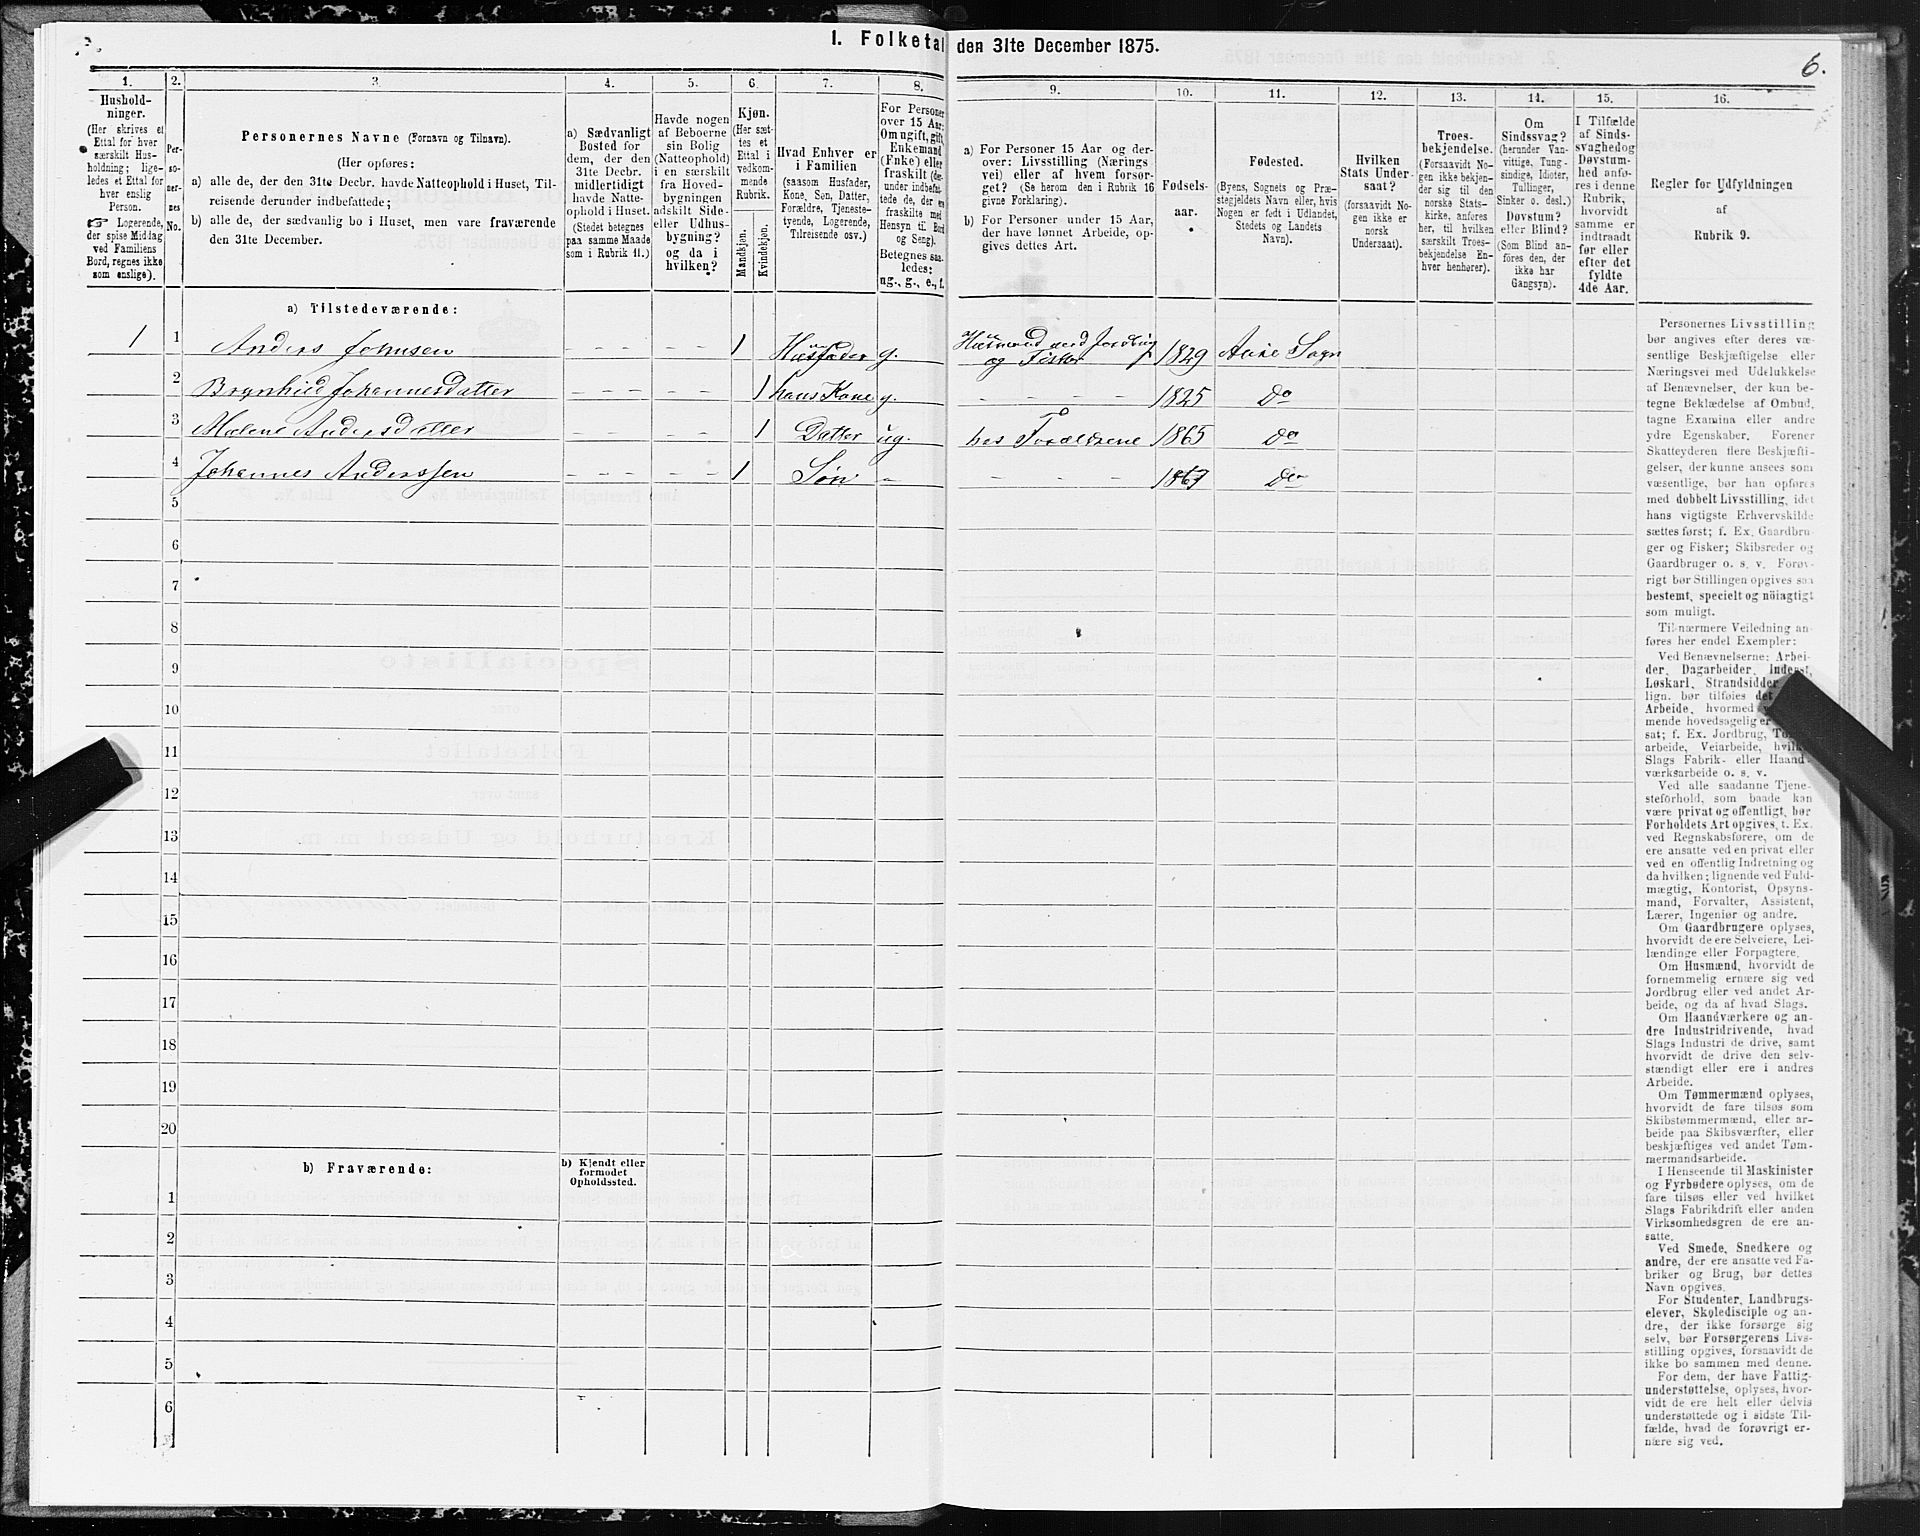 I. Folketal den 31te December 1875.
6.
1.
Hushold-
ninger.
(Her skrives et
Ettal for hver
særskilt Hus-
holdning; lige-
ledes et Ettal for
hver enslig
Person.
Logerende,
der spise Middag
ved Familiens
Bord, regnes ikke
som enslige).
2.
Per-
so-
ner-
nes
No.
3.
Personernes Navne (Fornavn og Tilnavn).
(Her opføres:
a) alle de, der den 31te Decbr. havde Natteophold i Huset, Til-
reisende derunder indbefattede;
b) alle de, der sædvanlig bo i Huset, men vare fraværende
den 31te December.
4.
a) Sædvanligt
Bosted for
dem, der den
31te Decbr.
midlertidigt
havde Natte-
ophold i Huset.
(Stedet betegnes
paa samme Maade
som i Rubrik 11.)
5.
Havde nogen
af Beboerne
sin Bolig
(Natteophold)
i en særskilt
fra Hoved-
bygningen
adskilt Side-
eller Udhus-
bygning?
og da i
hvilken?
6.
Kjøn.
(Her sæt-
tes et
Ettal i
vedkom-
mende
Rubrik.
Mandkjøn.
Kvindekjøn.
7.
Hvad Enhver er
i Familien
(saasom Husfader,
Kone, Søn, Datter,
Forældre, Tjeneste-
tyende, Logerende,
Tilreisende osv.)
8.
For Personer
over 15 Aar:
Om ugift, gift,
Enkemand
(Enke) eller
fraskilt (der-
under indbefat-
tede de, der ere
fraskilte med
Hensyn til Bord
og Seng).
Betegnes saa-
ledes:
ug., g., e., f.
9.
a) For Personer 15 Aar og der-
over: Livsstilling (Nærings
vei) eller af hvem forsør-
get? (Se herom den i Rubrik 16
givne Forklaring).
b) For Personer under 15 Aar,
der have lønnet Arbeide, op-
gives dettes Art.
10.
Fødsels-
aar.
11.
Fødested.
(Byens, Sognets og Præ-
stegjeldets Navn, eller hvis
Nogen er født i Udlandet,
Stedets og Landets
Navn).
12.
Hvilken
Stats Under-
saat?
(forsaavidt No-
gen ikke er
norsk
Undersaat).
13.
Troes-
bekjendelse.
(Forsaavidt No-
gen ikke bekjen-
der sig til den
norske Stats-
kirke, anføres
her, til hvilken
særskilt Troes-
bekjendelse En-
hver henhører).
14.
Om
Sindssvag?
(herunder Van-
vittige, Tung-
sindige, Idioter,
Tullinger,
Sinker o. desl.)
Døvstum?
eller Blind?
(Som Blind an-
føres den, der
ikke har
Gangsyn).
15.
I Tilfælde
af Sinds-
svaghed og
Døvstum-
hed anfø-
res i denne
Rubrik,
hvorvidt
samme er
indtraadt
før eller
efter det
fyldte
4de Aar.
16.
Regler for Udfyldningen
af
Rubrik 9.
a) Tilstedeværende:
1 1 Anders Johnsen – – – – – – 1 Husfader g. Husmand med Jordbrug og Fisker 1829 Aure Sogn
2 Brynhild Johannesdatter – – – – – – 1 hans Kone g. – – – – 1825 Do
3 Malene Andersdatter – – – – – – 1 Datter ug. hos Forældrene 1865 Do
4 Johannes Anderssen – – – – – – 1 Søn – – – – 1867 Do
5
6
7
8
9
10
11
12
13
14
15
16
17
18
19
20
b) Fraværende:
b) Kjendt eller
formodet
Opholdssted.
1
2
3
4
5
6
Personernes Livsstilling
bør angives efter deres væ-
sentlige Beskjæftigelse eller
Næringsvei med Udelukkelse
af Benævnelser, der kun be-
tegne Beklædelse af Ombud,
tagne Examina eller andre
ydre Egenskaber. Forener
Skatteyderen flere Beskjæfti-
gelser, der kunne ansees som
væsentlige, bør han opføres
med dobbelt Livsstilling, idet
hans vigtigste Erhvervskilde
sættes først; f. Ex. Gaardbru-
ger og Fisker; Skibsreder og
Gaardbruger o. s. v. Forøv-
rigt bør Stillingen opgives saa
bestemt, specielt og nöiagtigt
som muligt.
Til nærmere Veiledning an-
føres her endel Exempler:
Ved Benævnelserne: Arbei-
der, Dagarbeider, Inderst,
Løskarl, Strandsidder
lign. bør tilføies det
Arbeide, hvormed
mende hovedsagelig er
sat; f. Ex. Jordbrug,
arbeide, Veiarbeide, hvilket
Slags Fabrik- eller Haand-
værksarbeide o. s. v.
Ved alle saadanne Tjene-
steforhold, som baade kan
være privat og offentligt, bør
Forholdets Art opgives, t. Ex.
ved Regnskabsførere, om de
ere ansatte ved en privat eller
ved en offentlig Indretning og
da hvilken; lignende ved Fuld-
mægtig, Kontorist, Opsyns-
mand, Forvalter, Assistent,
Lærer, Ingeniør og andre.
Om Gaardbrugere oplyses,
hvorvidt de ere Selveiere, Lei-
lændinge eller Forpagtere.
Om Husmænd, hvorvidt de
fornemmelig ernære sig ved
Jordbrug eller ved andet Ar-
beide, og da af hvad Slags.
Om Haandværkere og an-
dre Industridrivende, hvad
Slags Industri de drive, samt
hvorvidt de drive den selv-
stændigt eller ere i andres
Arbeide.
Om Tømmermænd oplyses,
hvorvidt de fare tilsøs som
Skibstømmermænd, eller ar-
beide paa Skibsværfter, eller
beskjæftiges ved andet Tøm-
mermandsarbeide.
I Henseende til Maskinister
og Fyrbødere oplyses, om de
fare tilsøs eller ved hvilket
Slags Fabrikdrift eller anden
Virksomhedsgren de ere an-
satte.
Ved Smede, Snedkere og
andre, der ere ansatte ved Fa-
briker og Brug, bør dettes
Navn opgives.
For Studenter, Landbrugs-
elever, Skoledisciple og an-
dre, der ikke forsørge sig
selv, bør Forsørgerens Livs-
stilling opgives, forsaavidt de
ikke bo sammen med denne.
For dem, der have Fattig-
understøttelse, oplyses, hvor-
vidt de ere helt eller delvis
understøttede og i sidste Til-
fælde, hvad de forøvrigt er-
nære sig ved.